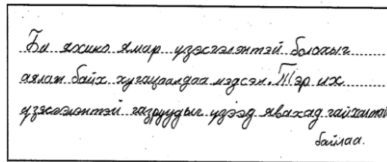 Би яхико ямар үзэсгэлэнтэй болохыг
аялаж байх хугацаандаа мэдсэн. Тэр их
үзэсгэлэнтэй газруудыг үзээд явахад гайхалтай
байлаа.